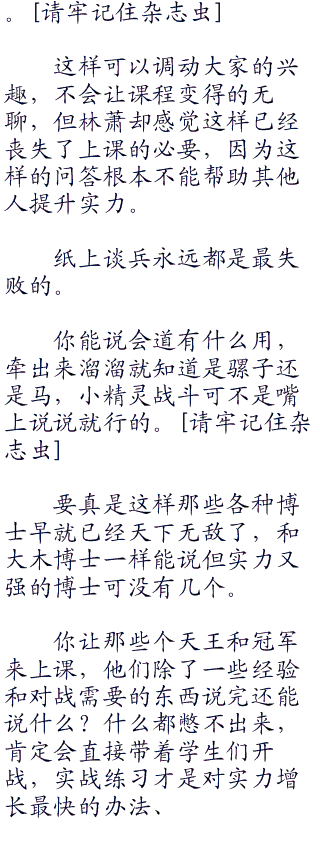 。[请牢记住杂志虫]
这样可以调动大家的兴
趣，不会让课程变得的无
聊，但林萧却感觉这样已经
丧失了上课的必要，因为这
样的问答根本不能帮助其他
人提升实力。
纸上谈兵永远都是最失
败的。
你能说会道有什么用，
牵出来溜溜就知道是骡子还
是马，小精灵战斗可不是嘴
上说说就行的。[请牢记住杂
志虫]
要真是这样那些各种博
士早就已经天下无敌了，和
大木博士一样能说但实力又
强的博士可没有几个。
你让那些个天王和冠军
来上课，他们除了一些经验
和对战需要的东西说完还能
说什么？什么都憋不出来，
肯定会直接带着学生们开
战，实战练习才是对实力增
长最快的办法、